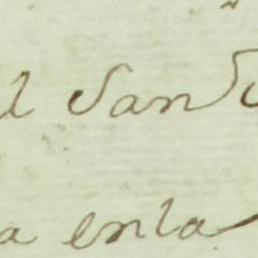 el San
a en la